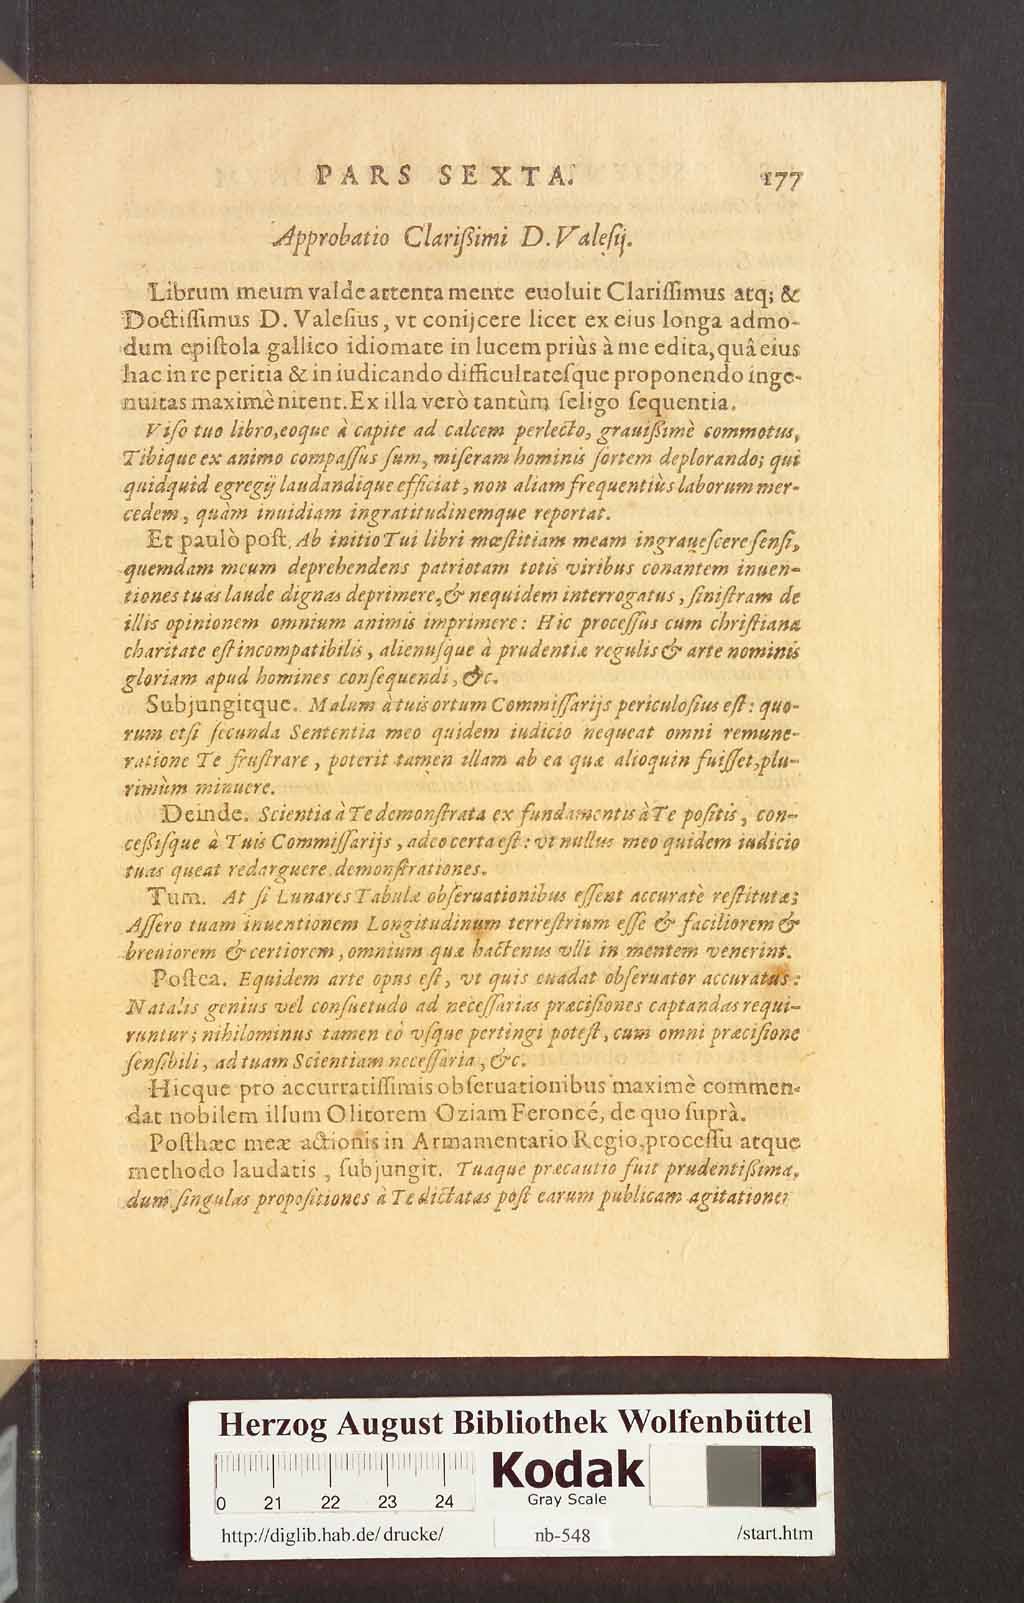 PARS SEXTA. 177
Approbatio Clarißimi D. Valesij.
Librum meum valde attenta mente euoluit Clarissimus atq; &
Doctissimus D. Valesius, vt conijcere licet ex eius longa admo-
dum epistola gallico idiomate in lucem priùs à me edita, quâ eius
hac in re peritia & in iudicando difficultatesque proponendo inge-
nuitas maximè nitent. Ex illa verò tantùm seligo sequentia.
Viso tuo libro, eoque à capite ad calcem perlecto, grauißimè commotus,
Tibique ex animo compassus sum, miseram hominis sortem deplorando; qui
quidquid egregij laudandique efficiat, non aliam frequentiùs laborum mer-
cedem, quàm inuidiam ingratitudinemque reportat.
Et paulò post. Ab initio Tui libri mœstitiam meam ingrauescere sensi,
quemdam meum deprehendens patriotam totis viribus conantem inuen-
tiones tuas laude dignas deprimere, & nequidem interrogatus, sinistram de
illis opinionem omnium animis imprimere: Hic processus cum christiana
charitate est incompatibilis, alienusque à prudentiæ regulis & arte nominis
gloriam apud homines consequendi, &c.
Subjungitque. Malum à tuis ortum Commissarijs periculosius est: quo-
rum etsi secunda Sententia meo quidem iudicio nequeat omni remune-
ratione Te frustrare, poterit tamen illam ab ea quæ alioquin fuisset, plu-
rimùm minuere.
Deinde. Scientia à Te demonstrata ex fundamentis à Te positis, con-
ceßisque à Tuis Commissarijs, adeo certa est: vt nullus meo quidem iudicio
tuas queat redarguere demonstrationes.
Tum. At si Lunares Tabulæ obseruationibus essent accuratè restitutæ;
Assero tuam inuentionem Longitudinum terrestrium esse & faciliorem &
breuiorem & certiorem, omnium quæ hactenus vlli in mentem venerint.
Postea. Equidem arte opus est, vt quis euadat obseruator accuratus:
Natalis genius vel consuetudo ad necessarias præcisiones captandas requi-
runtur; nihilominus tamen eò vsque pertingi potest, cum omni præcisione
sensibili, ad tuam Scientiam necessaria, &c.
Hicque pro accurratissimis obseruationibus maximè commen-
dat nobilem illum Olitorem Oziam Feroncé, de quo suprà.
Posthæc meæ actionis in Armamentario Regio, processu atque
methodo laudatis, subjungit. Tuaque præcautio fuit prudentißima,
dum singulas propositiones à Te dictatas post earum publicam agitationem
Herzog August Bibliothek Wolfenbüttel
0 21 22 23 24
Kodak
Gray Scale
http://diglib.hab.de/drucke/ nb-548 /start.htm